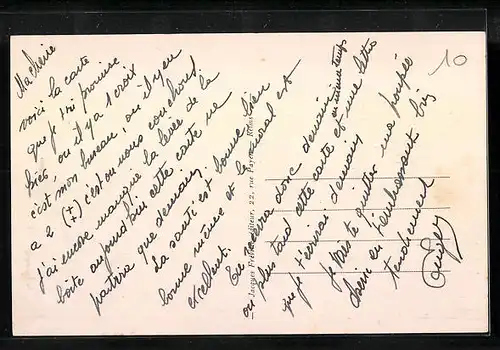 Ma chérie
voici la carte
que je t'ai promise
hier, où il y a 1 croix
c'est mon bureau, où il y en
a 2 (‡) c'est où nous couchons.
J'ai encore manqué la levée de la
boîte aujourd'hui cette carte ne
partira que demain.
La santé est bonne bien
bonne même et le moral est
excellent.
Tu donc demain
ou plus tard cette carte et en même temps
une lettre
que je t'écrirai demain
Je vais te quitter ma poupée
chérie en t'embrassant bis
tendrement
10
Jacques Editeur, 22, rue